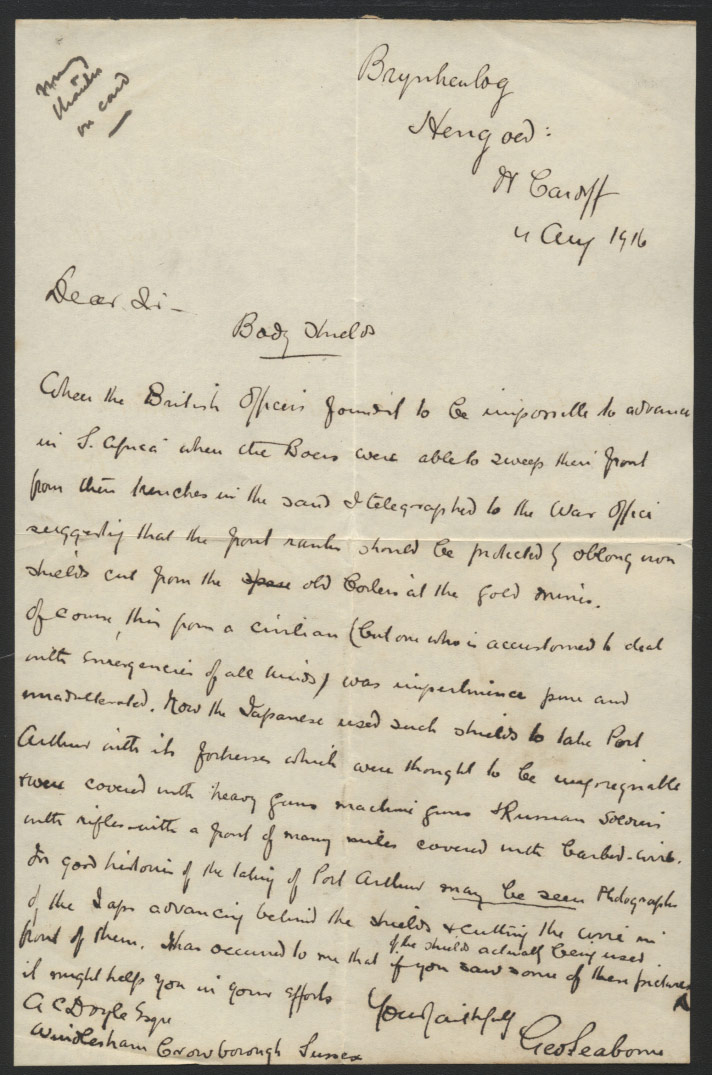 Many
thanks
on card
Brynhenlog
Hengoed:
Nr Cardiff
4 Aug 1916
Dear Sir -
Body Shields
When the British Officers found it to be impossible to advance
in S. Africa when the Boers were able to sweep their front
from their trenches in the sand I telegraphed to the War Office
suggesting that the front ranks should be protected by oblong iron
shields cut from the old boilers at the gold mines.
Of course, this from a civilian (but one who is accustomed to deal
with emergencies of all kinds) was impertinence pure and
unadulterated. Now the Japanese used such shields to take Port
Arthur with its fortresses which were thought to be impregnable
& were covered with heavy guns machine guns & Russian Soldiers
with rifles with a front of many miles covered with barbed-wire.
In good histories of the taking of Port Arthur may be seen Photographs
of the Japs advancing behind the shields & cutting the wire in
front of them. It has occurred to me that if you saw some of these pictures
of the shields actually being used
it might help you in your efforts
Yours faithfully
Geo Seaborne
A C Doyle Esqre
Windlesham Crowborough Sussex